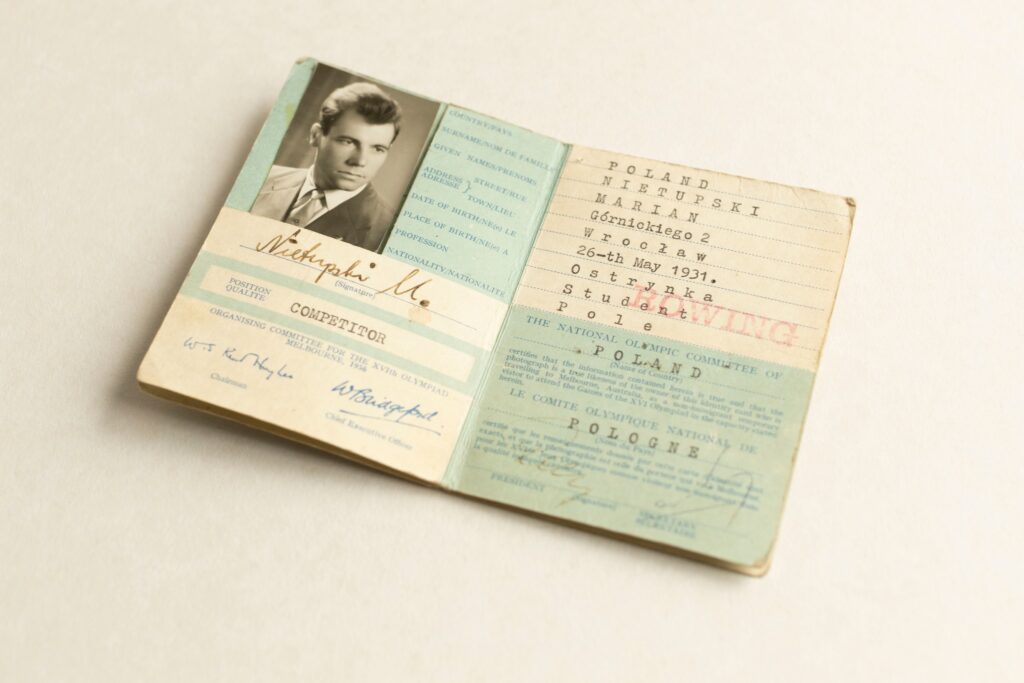 COUNTRY/PAYS
SURNAME/NOM DE FAMILLE
GIVEN NAMES/PRENOMS
ADDRESS } STREET/RUE
ADRESSE } TOWN/LIEU
DATE OF BIRTH/NE(e) LE
PLACE OF BIRTH/NE(e) A
PROFESSION
NATIONALITY/NATIONALITE
Nietupski M.
(Signature)
POSITION
QUALITE
COMPETITOR
ORGANISING COMMITTEE FOR THE XVIth OLYMPIAD
MELBOURNE, 1956
Chairman
W Bridgeford.
Chief Executive Officer
POLAND
NIETUPSKI
MARIAN
Górnickiego 2
Wrocław
26-th May 1931.
Ostrynka
Student
Pole
ROWING
THE NATIONAL OLYMPIC COMMITTEE OF
POLAND
(Name of Country)
certifies that the information contained herein is true and that the
photograph is a true likeness of the owner of this identity card who is
travelling to Melbourne, Australia, as a non-immigrant temporary
visitor to attend the Games of the XVI Olympiad in the capacity stated
herein.
LE COMITE OLYMPIQUE NATIONAL DE
POLOGNE
(Nom du Pays)
certifie que les renseignements donnés par cette carte
exacts, et que la photographie est celle du
PRESIDENT
(Signature)
SECRETARY
SECRETAIRE